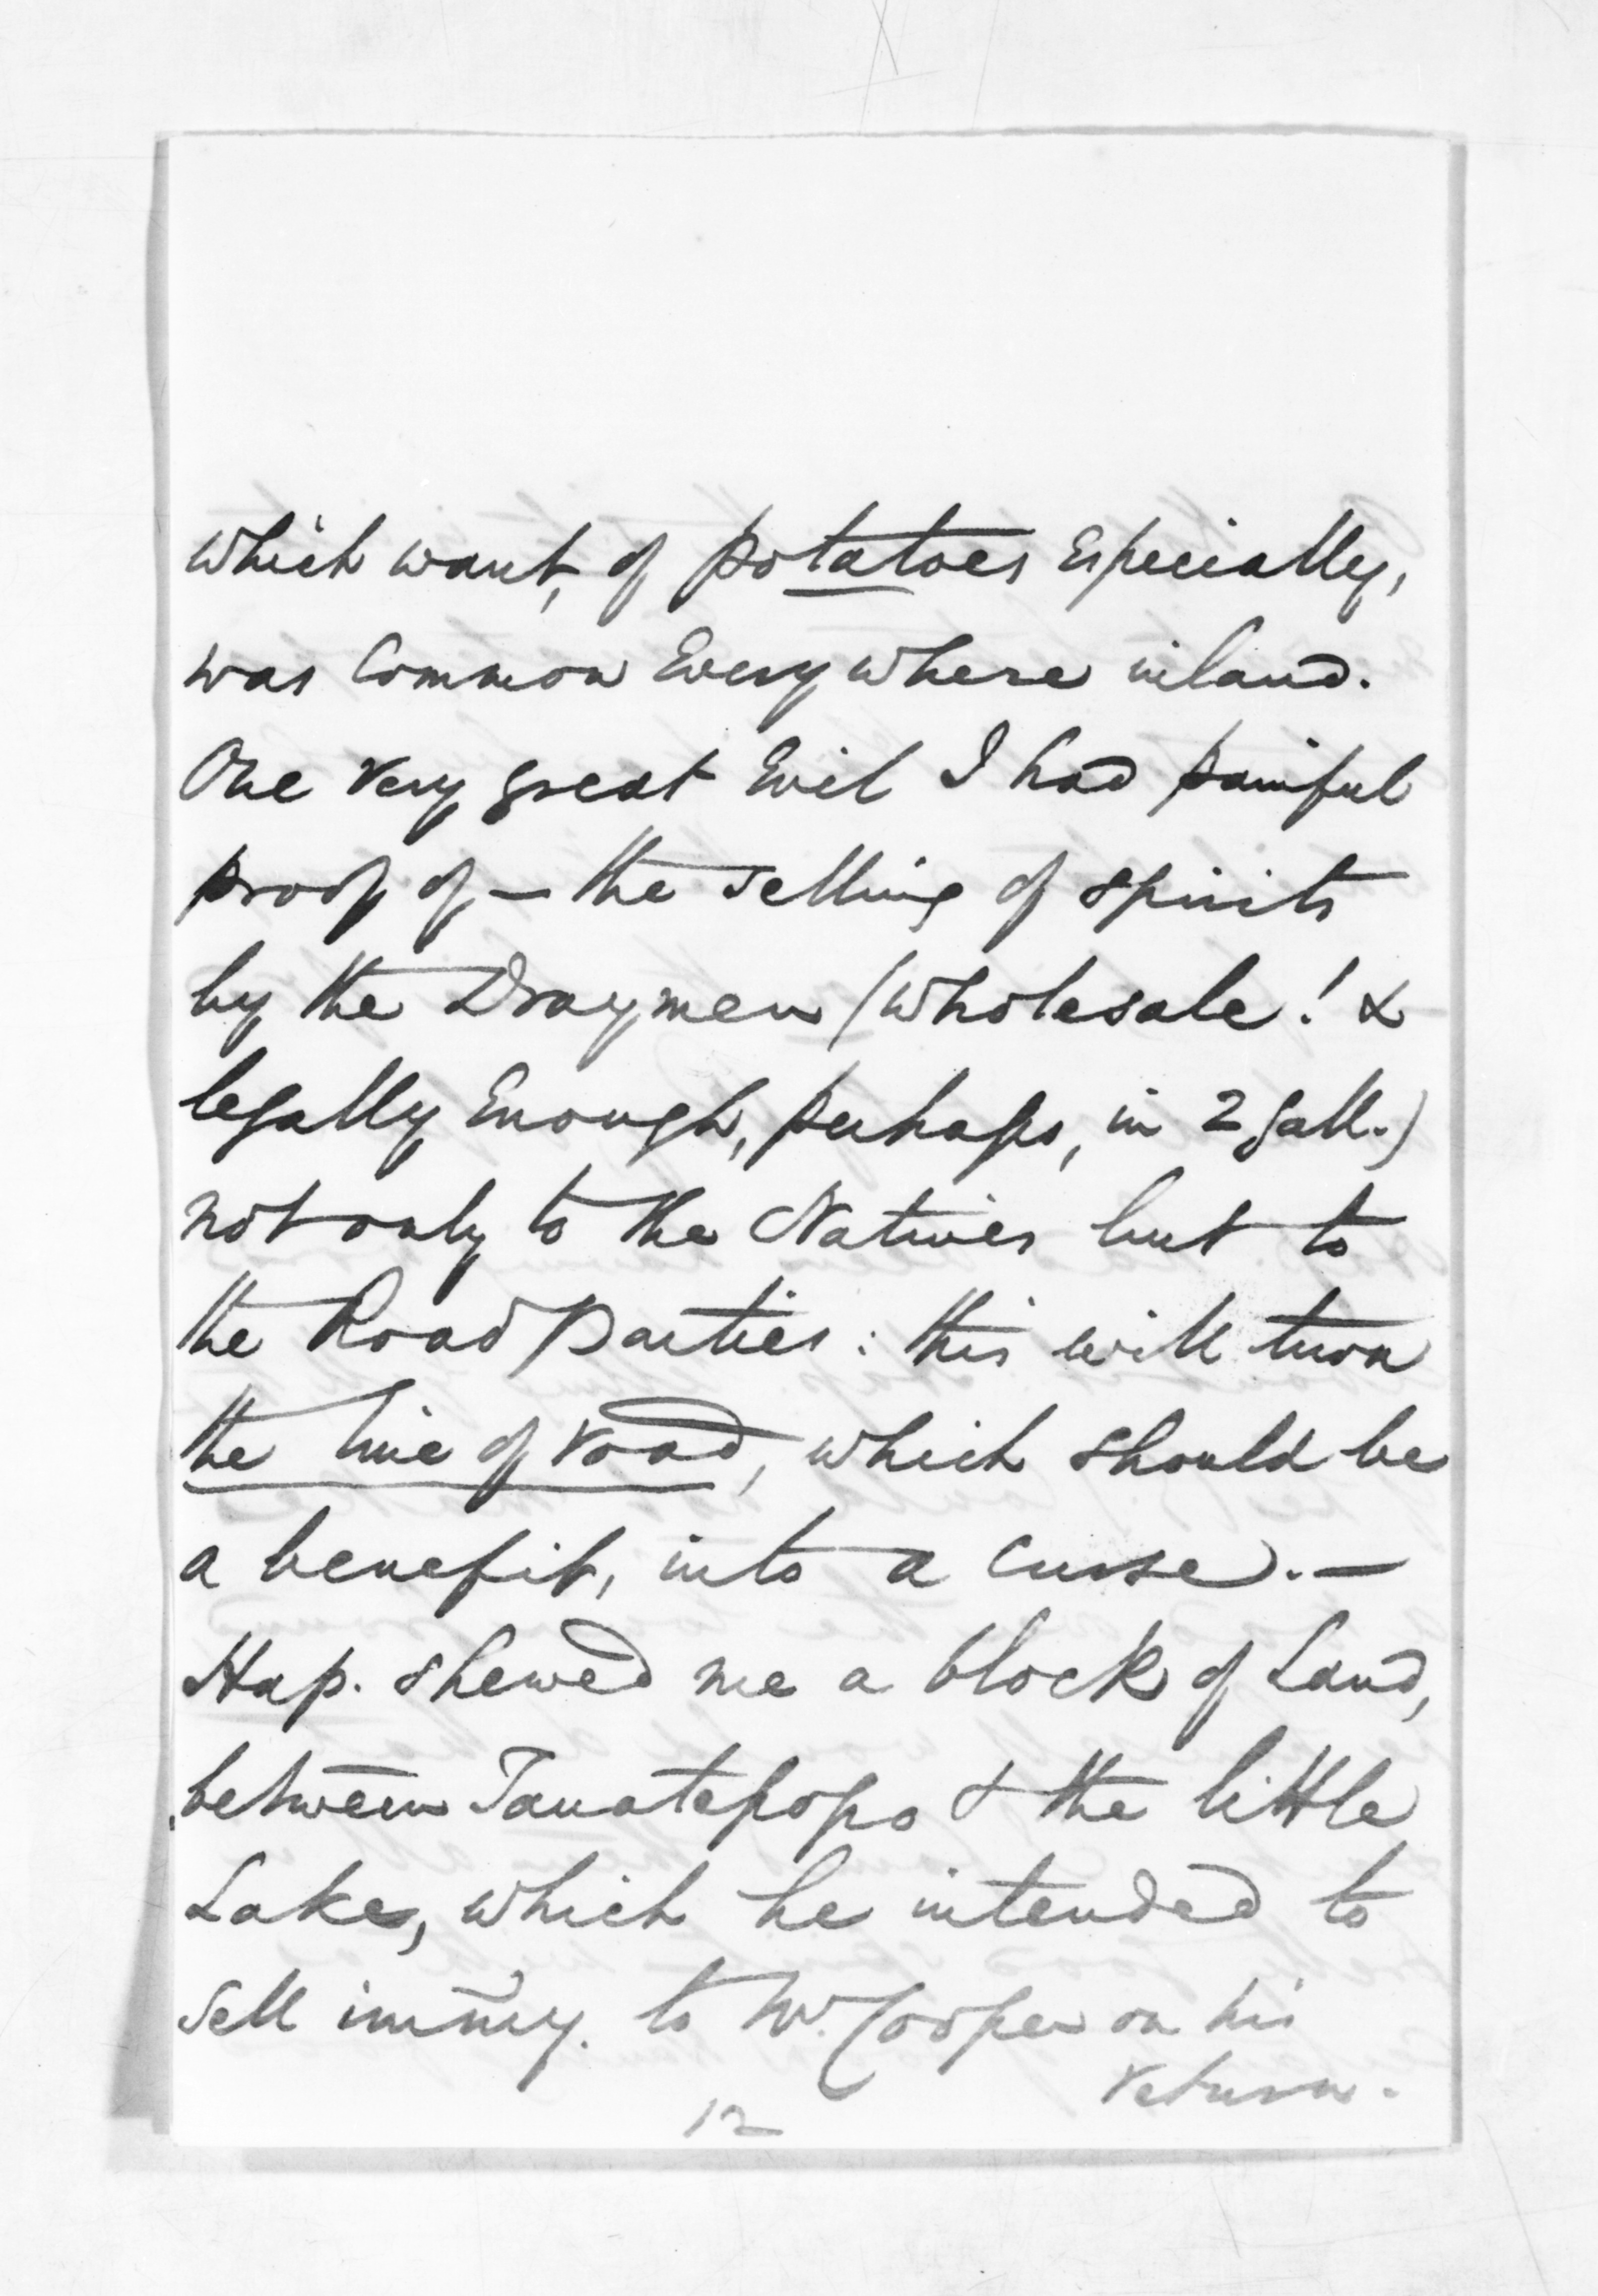 which want, of potatoes especially,
was common Everywhere inland.
One very great Evil I had painful
proof of — the selling of spirits
by the Draymen (wholesale! &
legally Enough, perhaps, in 2 gall.)
not only to the Natives but to
the Road Parties: this will turn
the line of road, which should be
a benefit, into a curse. —
Hap. shewed me a block of Land,
between Tauatepopo & the little
Lake, which he intended to
sell immy. to Mr. Cooper on his
return.
12